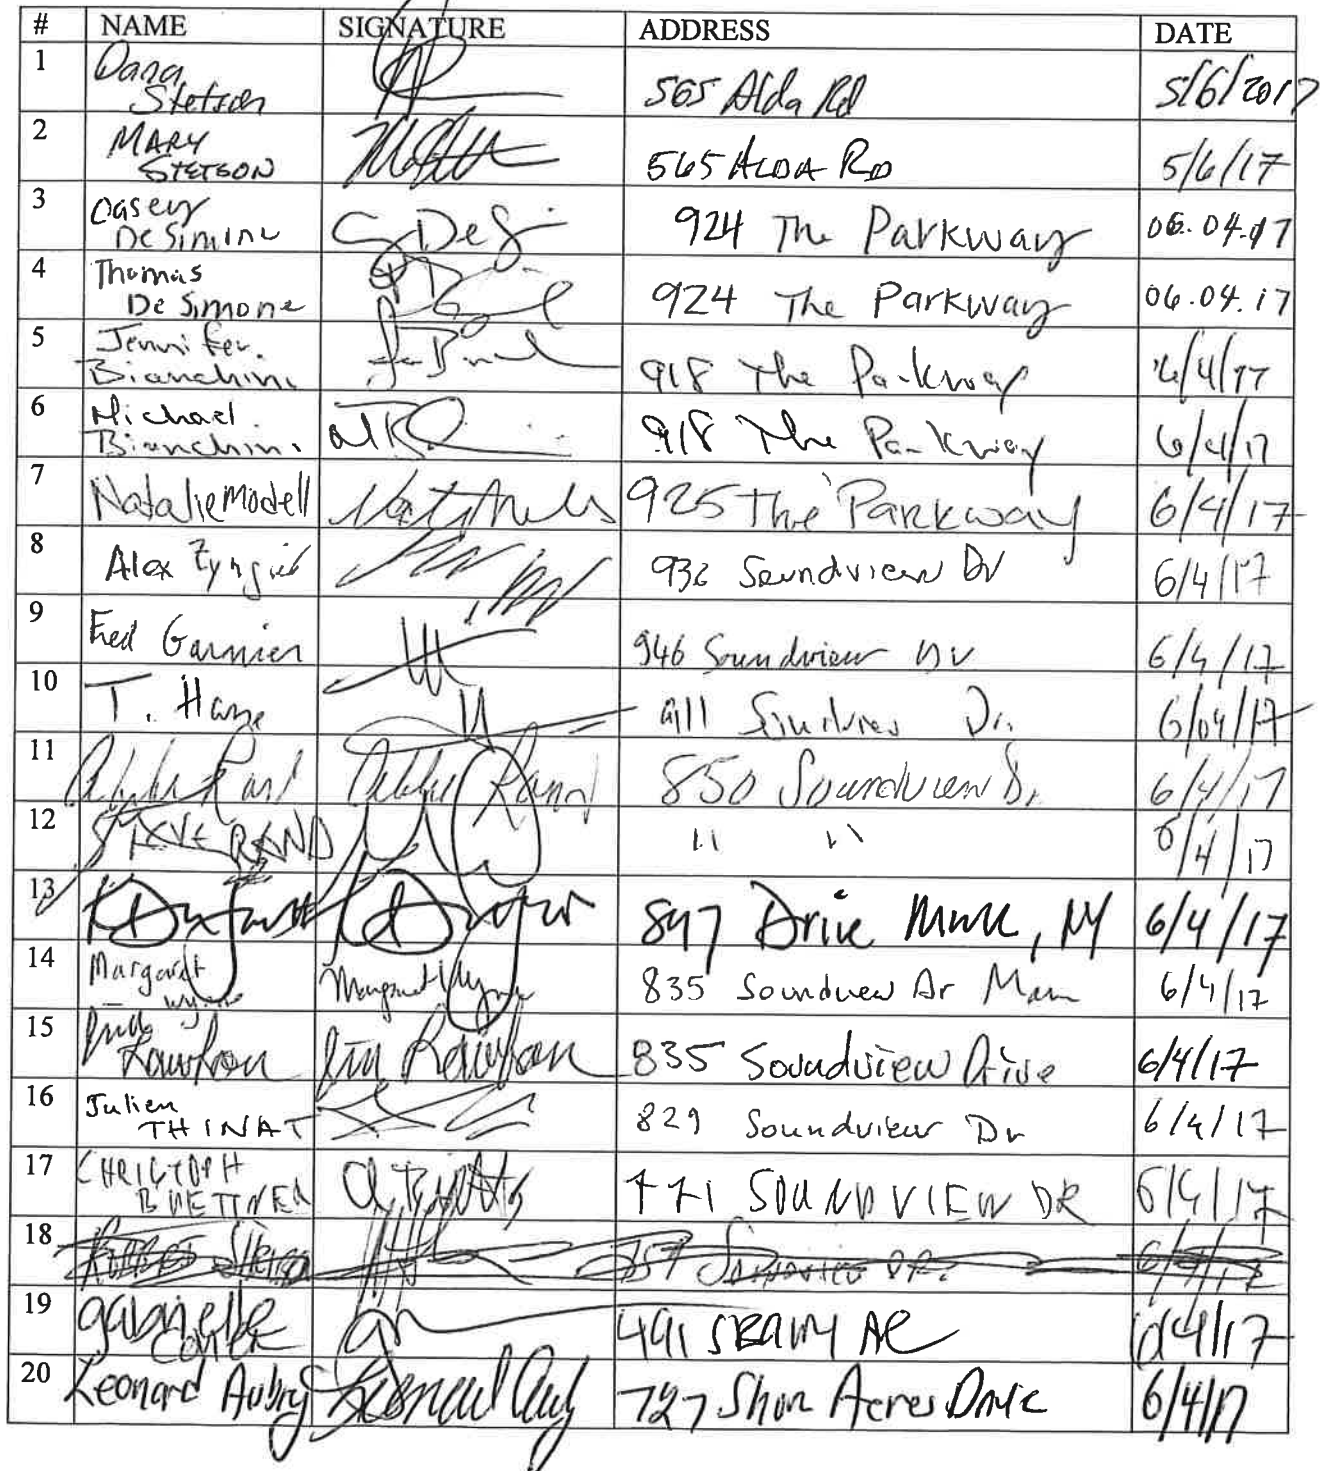 # NAME SIGNATURE ADDRESS DATE
1 Dana Stetson 565 Alda Rd 5/6/2017
2 MARY STETSON 565 ALDA RD 5/6/17
3 Casey DeSimone 924 The Parkway 06.04.17
4 Thomas DeSimone 924 The Parkway 06.04.17
5 Jennifer Bianchini 918 The Parkway 6/4/17
6 Michael Bianchini 918 The Parkway 6/4/17
7 Natalie Modell 925 The Parkway 6/4/17
8 Alex 932 Soundview Dr 6/4/17
9 Fred Garnier 946 Soundview Dv 6/4/17
10 T. 911 Dr. 6/04/17
11 Rand Rand 850 Soundview Dr. 6/4/17
12 STEVE RAND " " 6/4/17
13 Drive NY 6/4/17
14 Margaret Wynne Margaret Wynne 835 Soundview Dr Mam 6/4/17
15 Jim Rawson Jim Rawson 835 Soundview Drive 6/4/17
16 Julien THINAT 829 Soundview Dr 6/4/17
17 CHRISTOPH BUETTNER 771 SOUNDVIEW DR 6/4/17
18
19 gabrielle 4/17
20 Leonard Aubry Leonard Auby 727 Shore Acres Drive 6/4/17